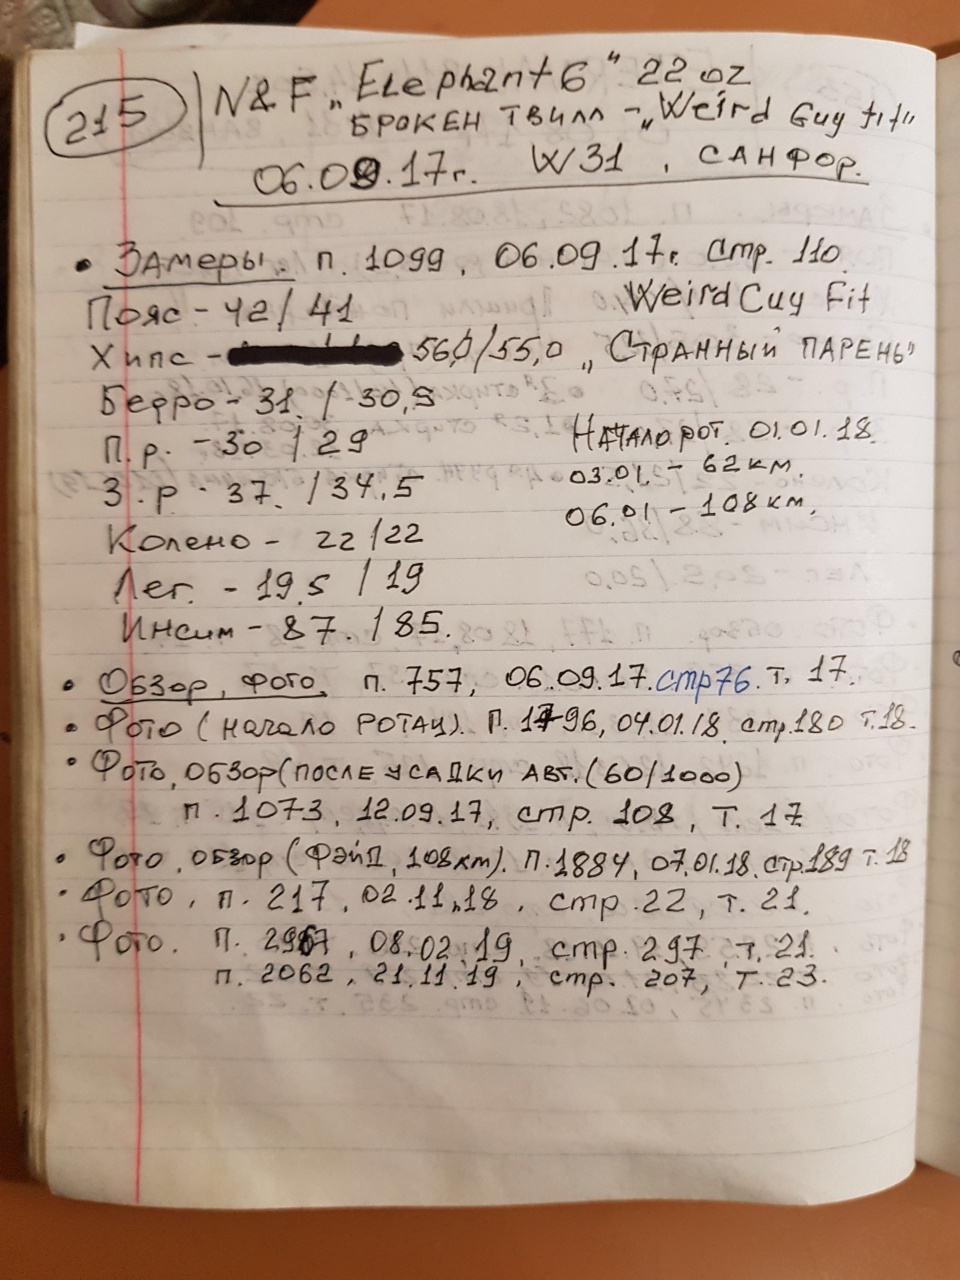 215 N&F „Elephant 6" 22 oz
БРОКЕН ТВИЛЛ - „Weird Guy fit"
06.09.17г. W31, САНФОР.
• Замеры. п. 1099, 06.09.17г. стр. 110.
Пояс - 42/41 Weird Guy Fit
Хипс - 56,0/55,0 „СТРАННЫЙ ПАРЕНЬ"
Бедро - 31. / 30,5
П.р. - 30 / 29 НАЧАЛО РОТ. 01.01.18.
03.01. - 62 км.
З.р - 37. / 34.5
06.01 - 108 км.
Колено - 22/22
Лег. - 19.5 / 19
Инсим - 87. / 85.
• Обзор, фото, п. 757, 06.09.17. стр 76. т. 17.
• Фото (начало РОТАЦ). П. 1796, 04.01.18. стр. 180 т. 18.
• Фото, ОБЗОР (ПОСЛЕ УСАДКИ АВТ. (60/1000)
п. 1073, 12.09.17, стр. 108, т. 17
• Фото, обзор (Фэйд, 108 км). П. 1884, 07.01.18. стр 189 т. 18
• Фото, п. 217, 02.11.18, стр. 22, т. 21.
• Фото. п. 2967, 08.02.19, стр. 297, т. 21.
п. 2062, 21.11.19, стр. 207, т. 23.